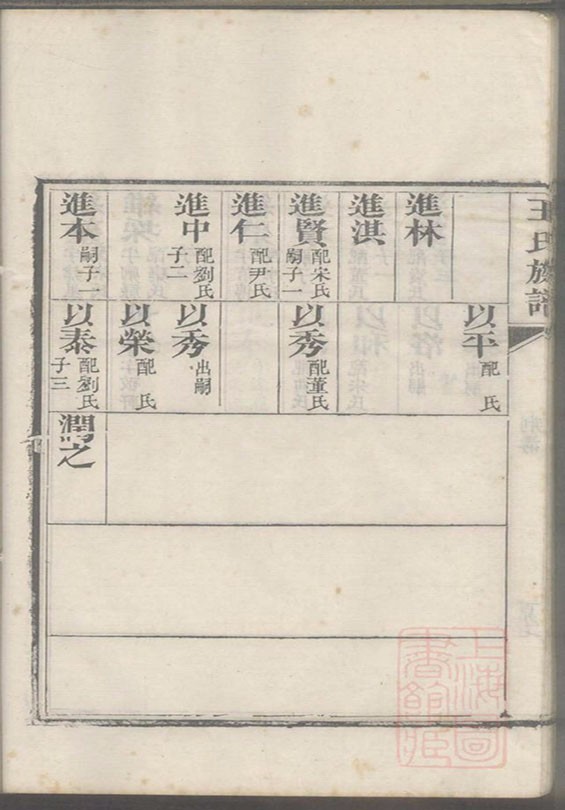 王氏族譜
進林
進淇
進賢 配宋氏 嗣子一
進仁 配尹氏
進中 配劉氏 子二
進本 嗣子一
以平 配 氏
以秀 配董氏
以秀 出嗣
以榮 配 氏
以泰 配劉氏 子三
潤之
上海圖書館藏